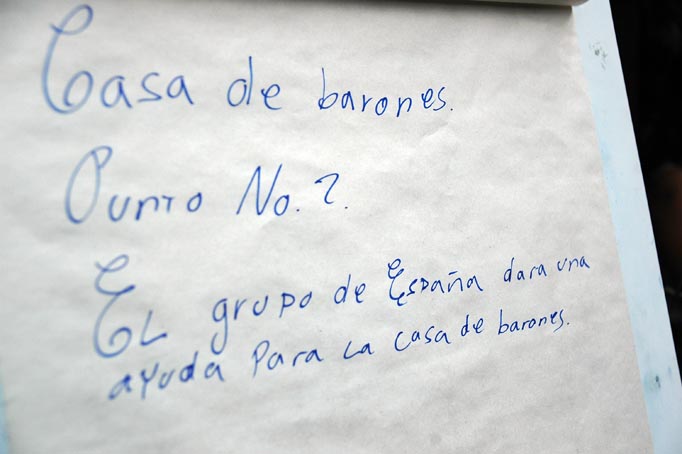 Casa de barones.
Punto No. 2.
EL grupo de España dara una
ayuda Para La casa de barones.